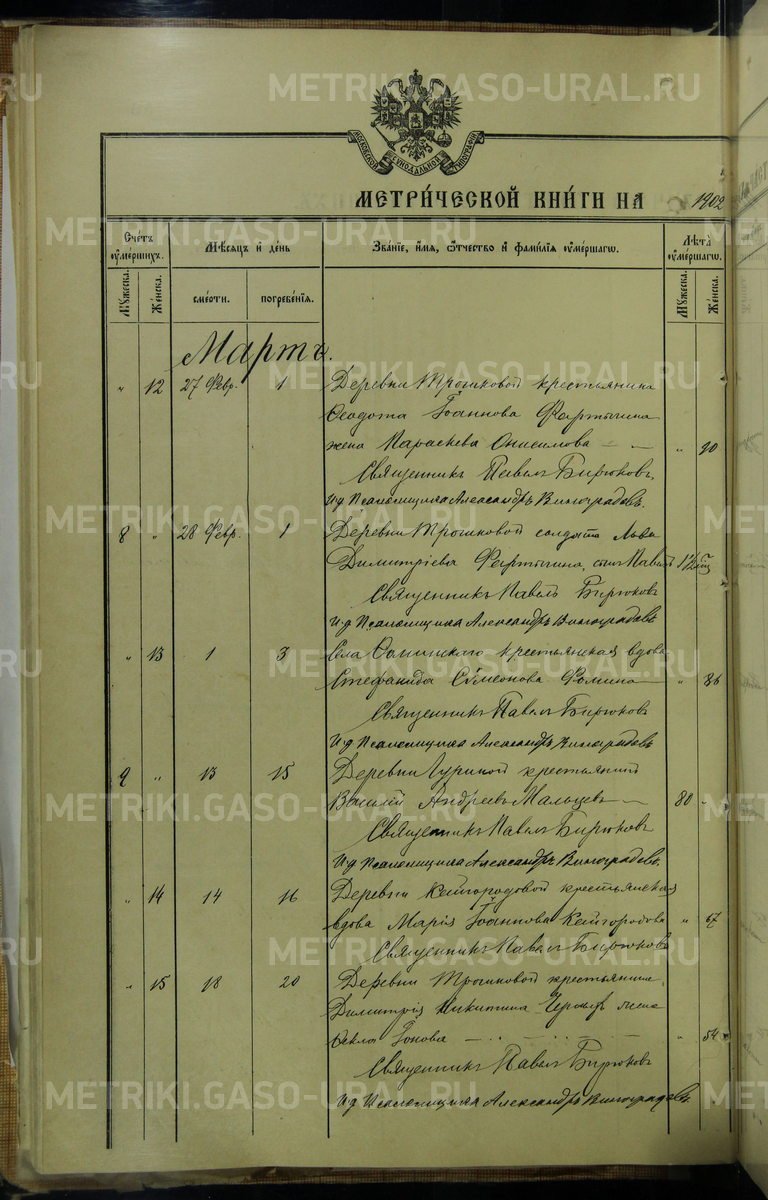 МОСКОВСКОЙ СУНОДАЛЬНОЙ ТИПОГРАФІИ
МЕТРИ́ЧЕСКОЙ КНИ́ГИ НА 1902
Сче́тъ ᲂу҆ме́ршихъ.
Мѣ́сяцъ и҆ де́нь
Зва́нїе, и҆́мя, ѻ҆́тчество и҆ фами́лїя ᲂу҆ме́ршагѡ.
Лѣ́та ᲂу҆ме́ршагѡ.
Мꙋ́жеска.
Же́нска.
сме́рти.
погребе́нїя.
Мꙋ́жеска.
Же́нска.
Мартъ.
" 12 27 Февр. 1 Деревни Трошковой крестьянина
Ѳеодота Іоаннова Фартыгина
жена Параскева Онисимова — — " 90
Священникъ Павелъ Бирюковъ.
И.д. Псаломщика Александръ Виноградовъ.
8 " 28 Февр. 1 Деревни Трошковой солдата Льва
Димитріева Фартыгина, сынъ Павелъ
Священникъ Павелъ Бирюковъ
И.д Псаломщика Александръ Виноградовъ
" 13 1 3 Села крестьянская вдова
Стефанида Сѵмеонова Фомина — " 86
Священникъ Павелъ Бирюковъ
И.д Псаломщика Александръ Виноградовъ
9 " 13 15 Деревни Гуриной крестьянинъ
Василій Андреевъ Мальцевъ — 80 "
Священникъ Павелъ Бирюковъ
И.д Псаломщика Александръ Виноградовъ.
" 14 14 16 Деревни Кейгородовой крестьянская
вдова Марія Іоаннова Кейгородова " 67
Священникъ Павелъ Бирюковъ
" 15 18 20 Деревни Трошковой крестьянина
Димитрія Никитина жена
Ѳекла Іонова — " 54
Священникъ Павелъ Бирюковъ
И.д Псаломщика Александръ Виноградовъ.
METRIKI.GASO-URAL.RU